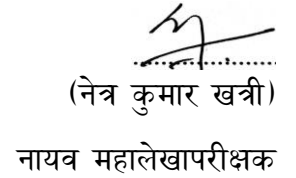 (नेत्र कुमार खत्री)
नायव महालेखापरीक्षक